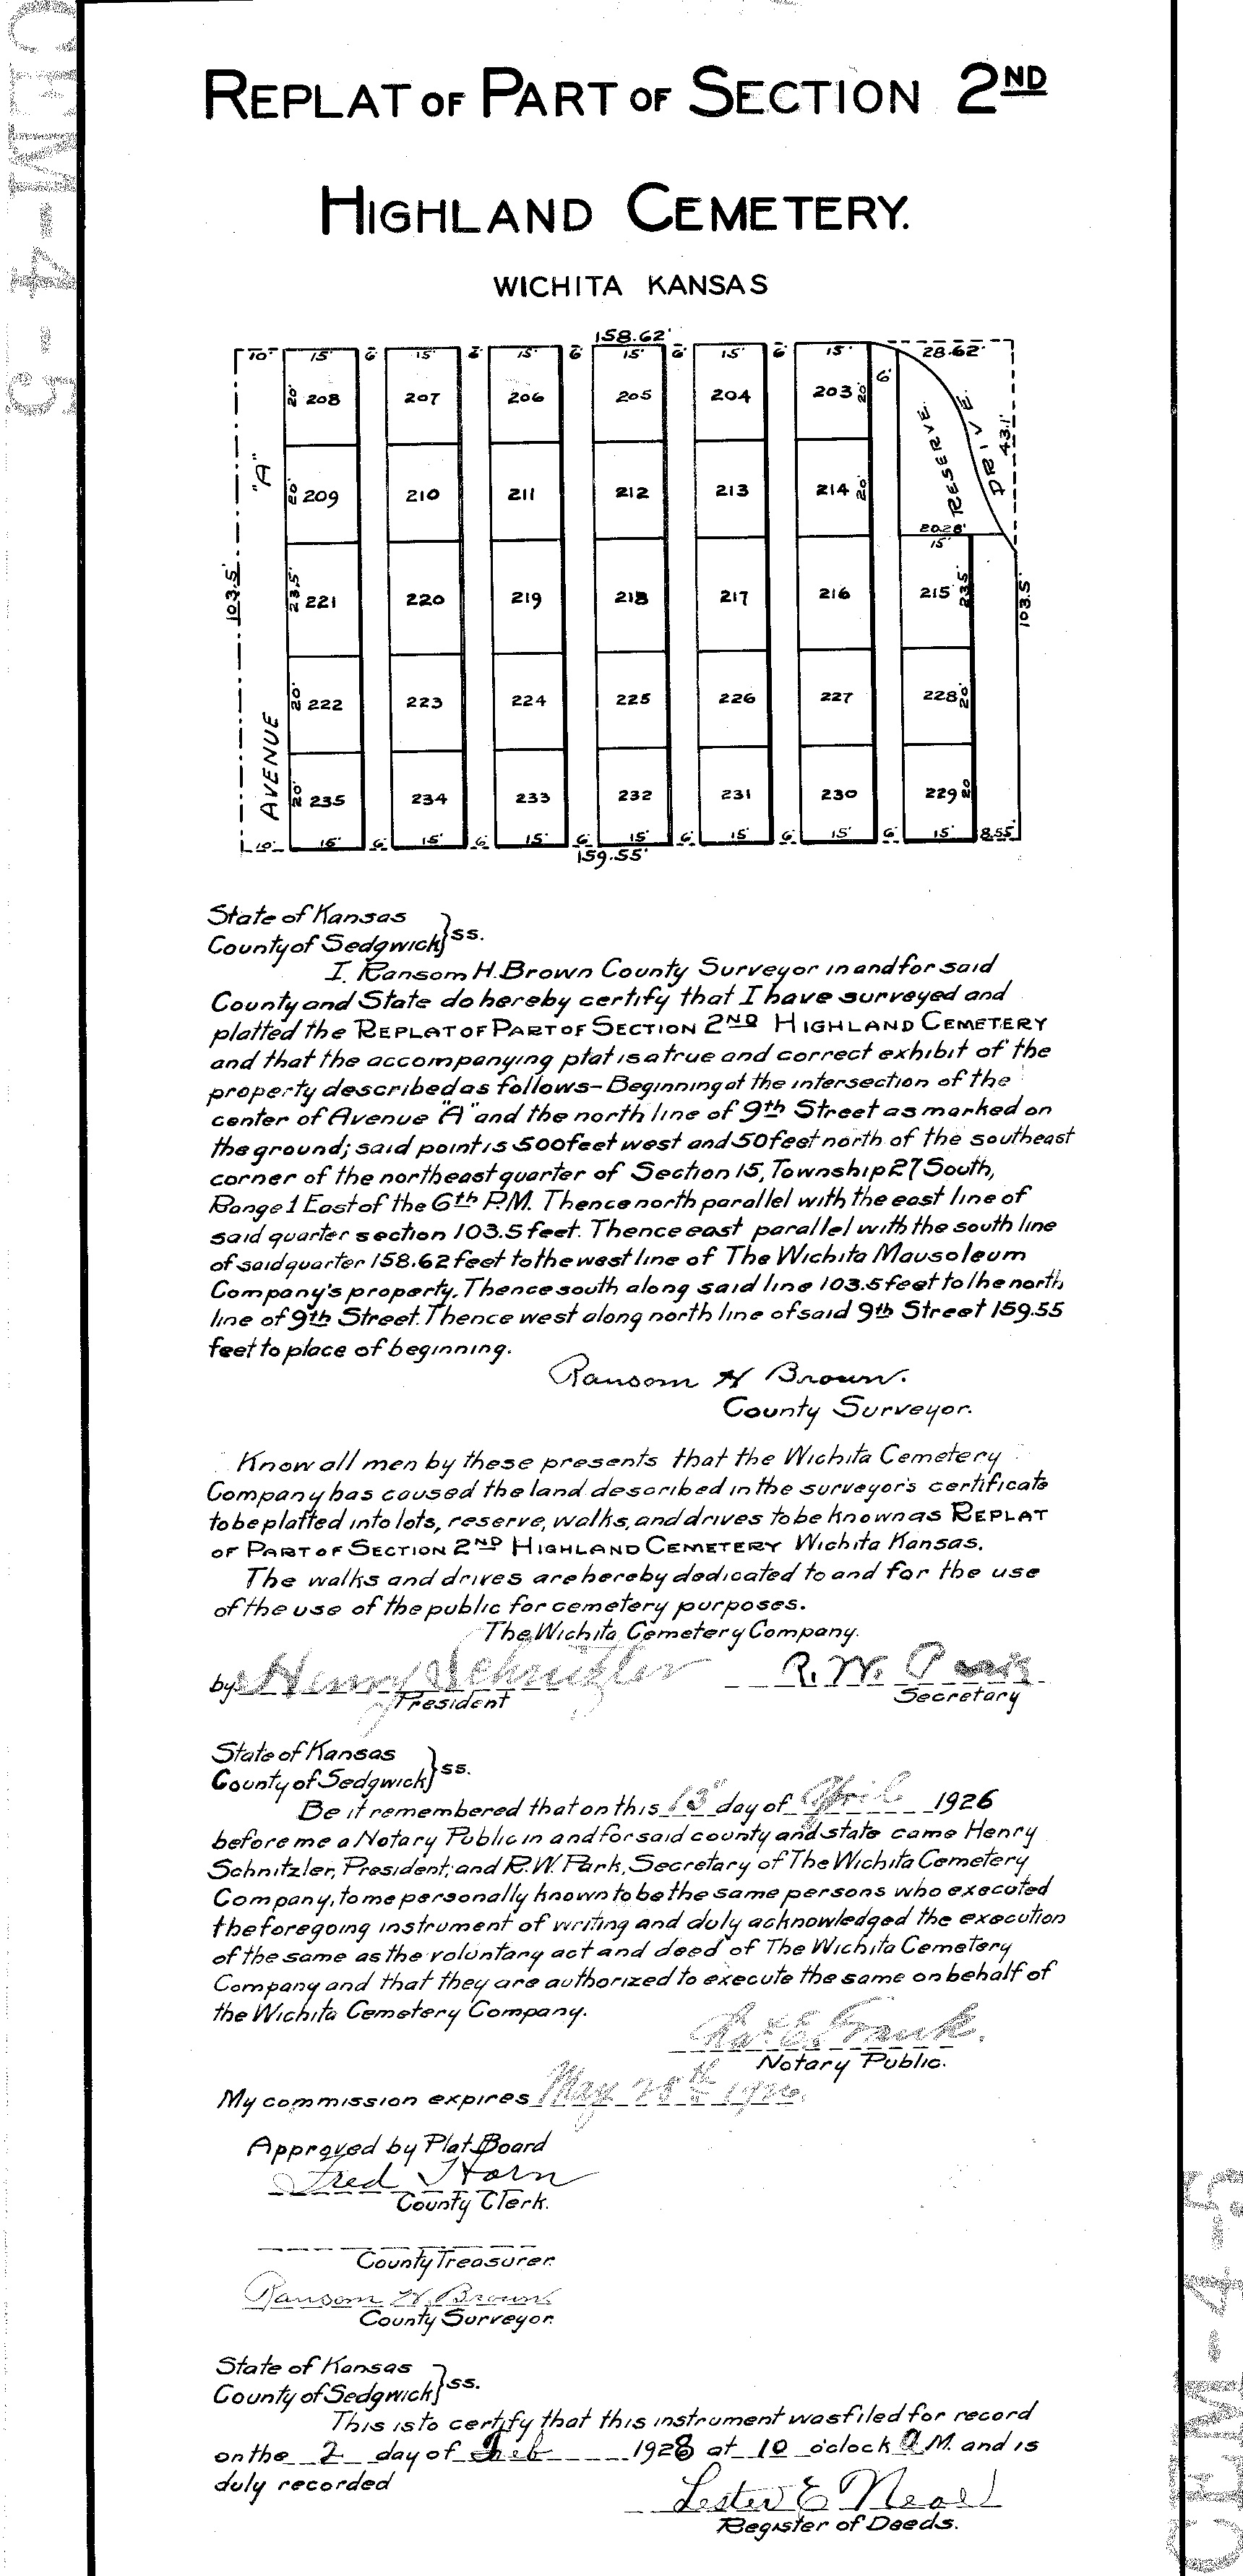 REPLAT OF PART OF SECTION 2ND
HIGHLAND CEMETERY.
WICHITA KANSAS
158.62'
10' 15' 6' 15' 6' 15' 6' 15' 6' 15' 6' 15' 28.62'
20' 208 207 206 205 204 203 20' 6'
RESERVE. DRIVE. 43.1'
"A"
20' 209 210 211 212 213 214 20'
20.28'
15'
103.5' 23.5' 221 220 219 218 217 216 215 23.5' 103.5'
20' 222 223 224 225 226 227 228 20'
AVENUE
20' 235 234 233 232 231 230 229 20'
10' 15' 6' 15' 6' 15' 6' 15' 6' 15' 6' 15' 6' 15' 8.55'
159.55'
State of Kansas
County of Sedgwick } ss.
I. Ransom H. Brown County Surveyor in and for said
County and State do hereby certify that I have surveyed and
platted the REPLAT OF PART OF SECTION 2ND HIGHLAND CEMETERY
and that the accompanying plat is a true and correct exhibit of the
property described as follows- Beginning at the intersection of the
center of Avenue "A" and the north line of 9th Street as marked on
the ground; said point is 500 feet west and 50 feet north of the southeast
corner of the northeast quarter of Section 15, Township 27 South,
Range 1 East of the 6th P.M. Thence north parallel with the east line of
said quarter section 103.5 feet. Thence east parallel with the south line
of said quarter 158.62 feet to the west line of The Wichita Mausoleum
Company's property. Thence south along said line 103.5 feet to the north
line of 9th Street. Thence west along north line of said 9th Street 159.55
feet to place of beginning.
Ransom H Brown.
County Surveyor.
Know all men by these presents that the Wichita Cemetery
Company has caused the land described in the surveyor's certificate
to be platted into lots, reserve, walks, and drives to be known as REPLAT
OF PART OF SECTION 2ND HIGHLAND CEMETERY Wichita Kansas.
The walks and drives are hereby dedicated to and for the use
of the use of the public for cemetery purposes.
The Wichita Cemetery Company.
by Henry Schnitzler R. W. Park
President Secretary
State of Kansas
County of Sedgwick } ss.
Be it remembered that on this 13" day of April 1926
before me a Notary Public in and for said county and state came Henry
Schnitzler, President; and R.W. Park, Secretary of The Wichita Cemetery
Company, to me personally known to be the same persons who executed
the foregoing instrument of writing and duly acknowledged the execution
of the same as the voluntary act and deed of The Wichita Cemetery
Company and that they are authorized to execute the same on behalf of
the Wichita Cemetery Company.
E. Frank.
Notary Public.
My commission expires May 28th 1926.
Approved by Plat Board
Fred Horn
County Clerk.
County Treasurer.
Ransom H. Brown
County Surveyor.
State of Kansas
County of Sedgwick } ss.
This is to certify that this instrument was filed for record
on the 2 day of Feb 1928 at 10 o'clock A M. and is
duly recorded
Lester E Neal
Register of Deeds.
CEM-4-5
CEM-4-5